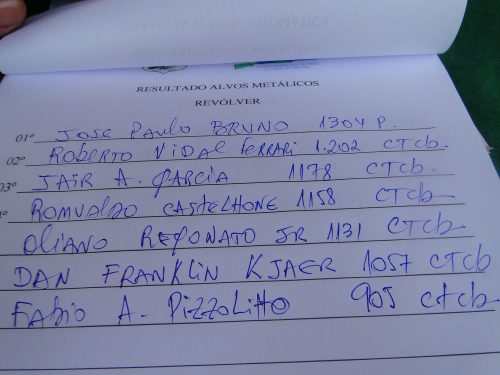 RESULTADO ALVOS METÁLICOS
REVÓLVER
01º JOSE PAULO BRUNO 1304 P.
02º ROBERTO VIDAL FERRARI 1.202 CTCb.
03º JAIR A. GARCIA 1178 CTCb.
º ROMUALDO CASTELHONE 1158 CTCb
OLIANO REGONATO JR 1131 CTCb
DAN FRANKLIN KJAER 1057 CTCb
FABIO A. PIZZOLITTO 905 CTCb